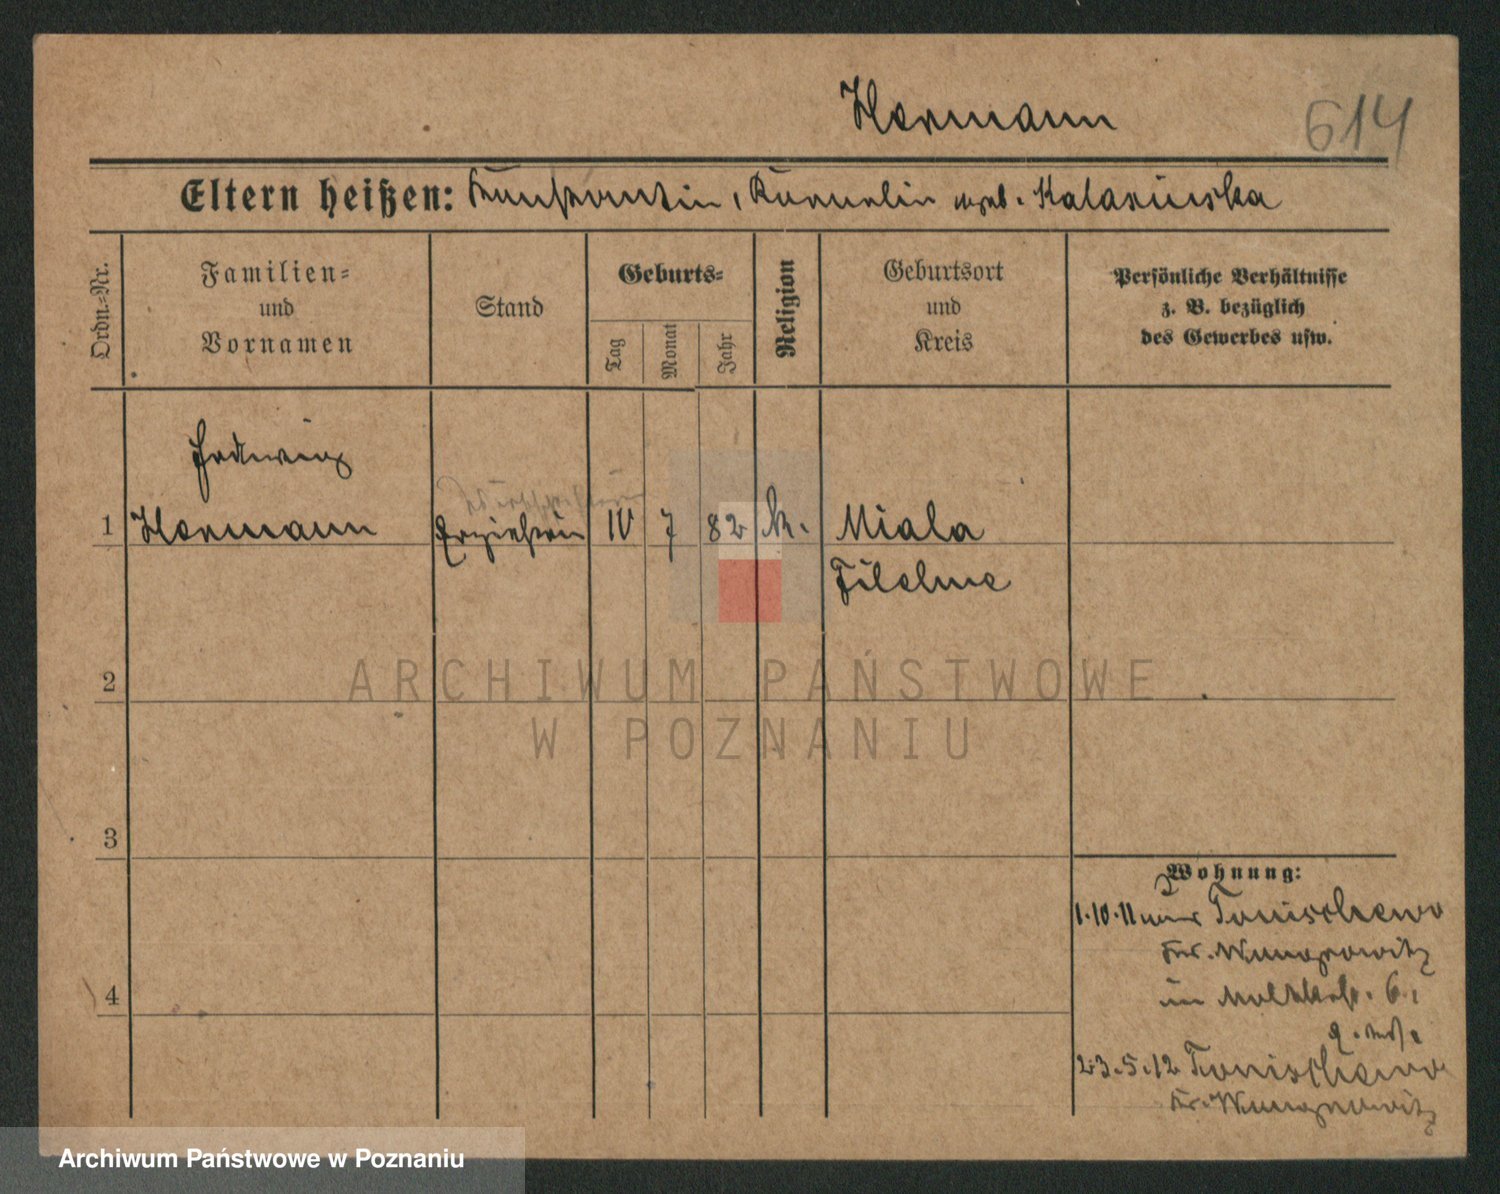 Hermann
614
Eltern heißen: Konstantin, Kornelia geb. Kalasinska
Ordn.-Nr.
Familien-
und
Vornamen
Stand
Geburts-
Tag
Monat
Jahr
Religion
Geburtsort
und
Kreis
Persönliche Verhältnisse
z. B. bezüglich
des Gewerbes usw.
Hedwig
1 Hermann Erzieherin 10 7 82 k. Miala
Filehne
ARCHIWUM PAŃSTWOWE
W POZNANIU
2
3
4
Wohnung:
1.10.11 Tonischewo
Kr. Wongrowitz
in Moltkestr. 6 I
23.5.12 Tonischewo
Kr. Wongrowitz
Archiwum Państwowe w Poznaniu